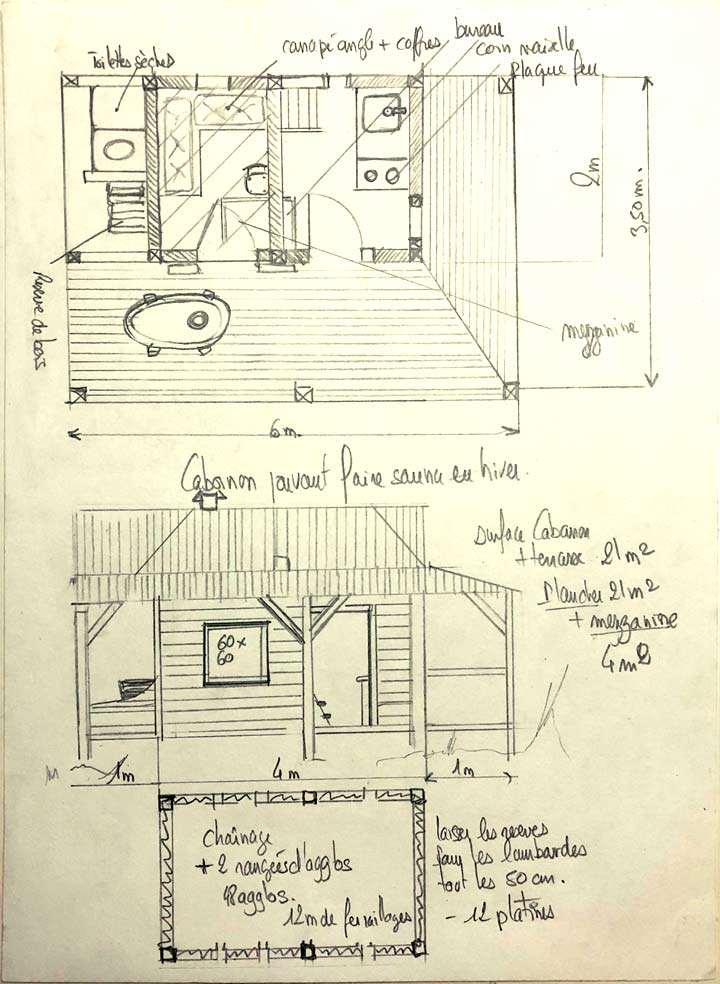 Toilettes sèches
canapé angle + coffres
bureau
coin vaisselle
plaque feu
2m
3,50 m.
Réserve de bois
mezzanine
6 m.
Cabanon pouvant faire sauna en hiver.
Surface Cabanon
+ terrasse 21 m²
Plancher 21 m²
+ mezzanine
4 m²
60 x
60
1m
4m
1m
chaînage
+ 2 rangées d'agglos
48 agglos.
12 m de ferraillages
laisser les réserves
pour les lambourdes
tout les 50 cm.
- 12 platines